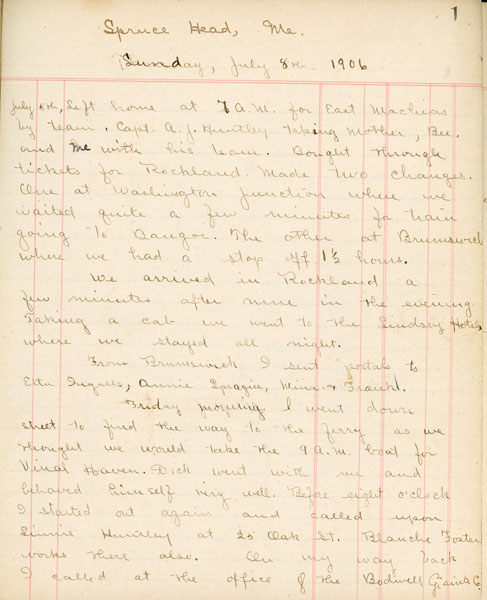 1
Spruce Head, Me.
Sunday, July 8th. 1906
July 5th, Left home at 7 A.M. for East Machias
by team. Capt. A. J. Huntley taking Mother, Bee,
and me with his team. Bought through
tickets for Rockland. Made two changes.
One at Washington Junction where we
waited quite a few minutes for train
going to Bangor. The other at Brunswick
where we had a stop off 1½ hours.
We arrived in Rockland a
few minutes after nine in the evening.
Taking a cab we went to the Lindsey Hotel,
where we stayed all night.
From Brunswick I sent postals to
Etta Ingalls, Annie Sprague, Mina & Frank.
Friday morning I went down
street to find the way to the ferry as we
thought we would take the 9 A.M. boat for
Vinal Haven. Dick went with me and
behaved himself very well. Before eight o'clock
I started out again and called upon
Linnie Huntley at 25 Oak St. Blanche Foster
works there also. On my way back
I called at the office of the Bodwell Granite Co.